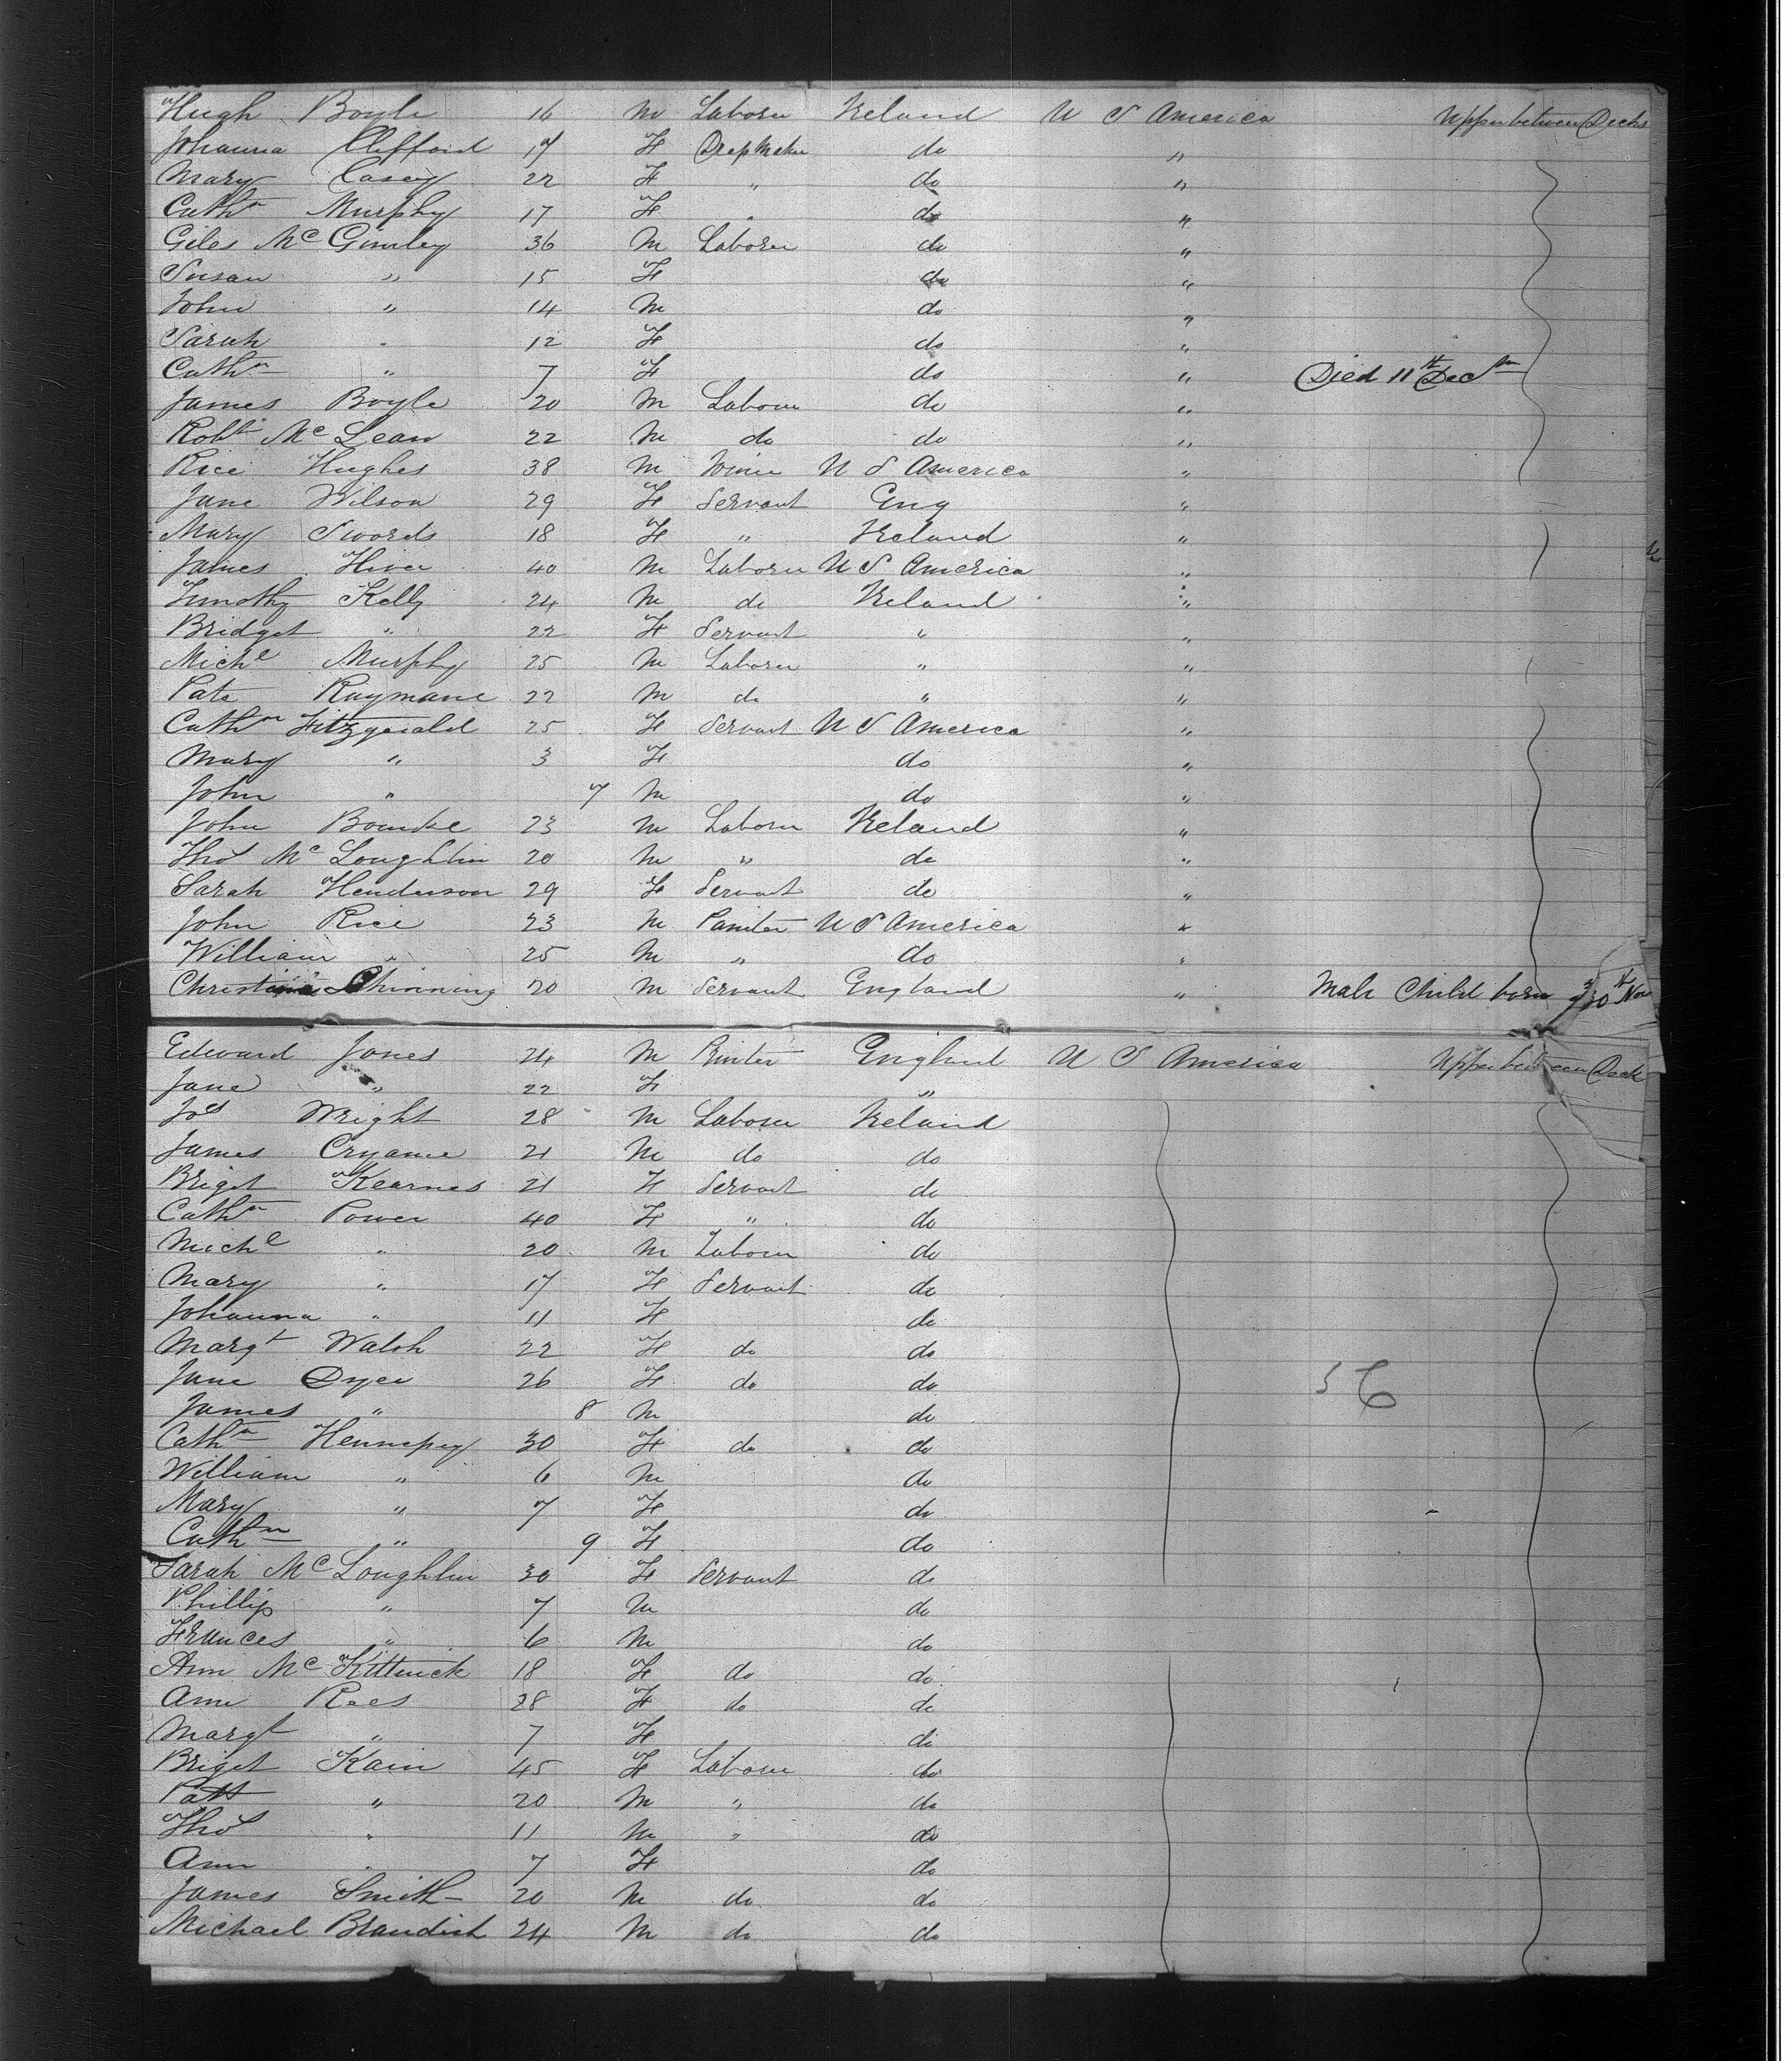 Hugh Boyle 16 M Laborer Ireland U S America Upper between Decks
Johanna Clifford 17 F Dressmaker do "
Mary Casey 22 F " do "
Cathn Murphy 17 F " do "
Giles McGinley 36 M Laborer do "
Susan " 15 F do "
John " 14 M do "
Sarah " 12 F do "
Cathn " 7 F do " Died 11th Decm
James Boyle 20 M Laborer do "
Robt McLean 22 M do do "
Rice Hughes 38 M Miner U S America "
Jane Wilson 29 F Servant Eng "
Mary Swords 18 F " Ireland "
James Hiver 40 M Laborer U S America "
Timothy Kelly 24 M do Ireland "
Bridget " 22 F Servant " "
Michl Murphy 25 M Laborer " "
Patk 22 M do " "
Cathn Fitzgerald 25 F Servant U S America "
Mary " 3 F do "
John " 7 M do "
John Bourke 23 M Laborer Ireland "
Thos McLoughlin 20 M " do "
Sarah Henderson 29 F Servant do "
John Rice 23 M Painter U S America "
William " 25 M " do "
20 M Servant England " Male Child born 30th Nov
Edward Jones 24 M Printer England U S America Upper between Deck
Jane " 22 F "
Jos Wright 28 M Laborer Ireland
James 21 M do do
Briget Kearnes 21 F Servant do
Cathn Power 40 F " do
Michl " 20 M Laborer do
Mary " 17 F Servant do
Johanna " 11 F do
Margt Walsh 22 F do do
Jane Dyer 26 F do do
James " 8 M do
Cathn Hennesey 30 F do do
William " 6 M do
Mary " 7 F do
Cathn " 9 F do
Sarah McLoughlin 30 F Servant do
Phillip " 7 M do
Frances " 6 M do
56
Ann McKittrick 18 F do do
Ann Rees 28 F do do
Margt " 7 F do
Briget Kain 45 F Laborer do
Patt " 20 M " do
Thos " 11 M " do
Ann " 7 F do
James Smith 20 M do do
Michael Brandish 24 M do do